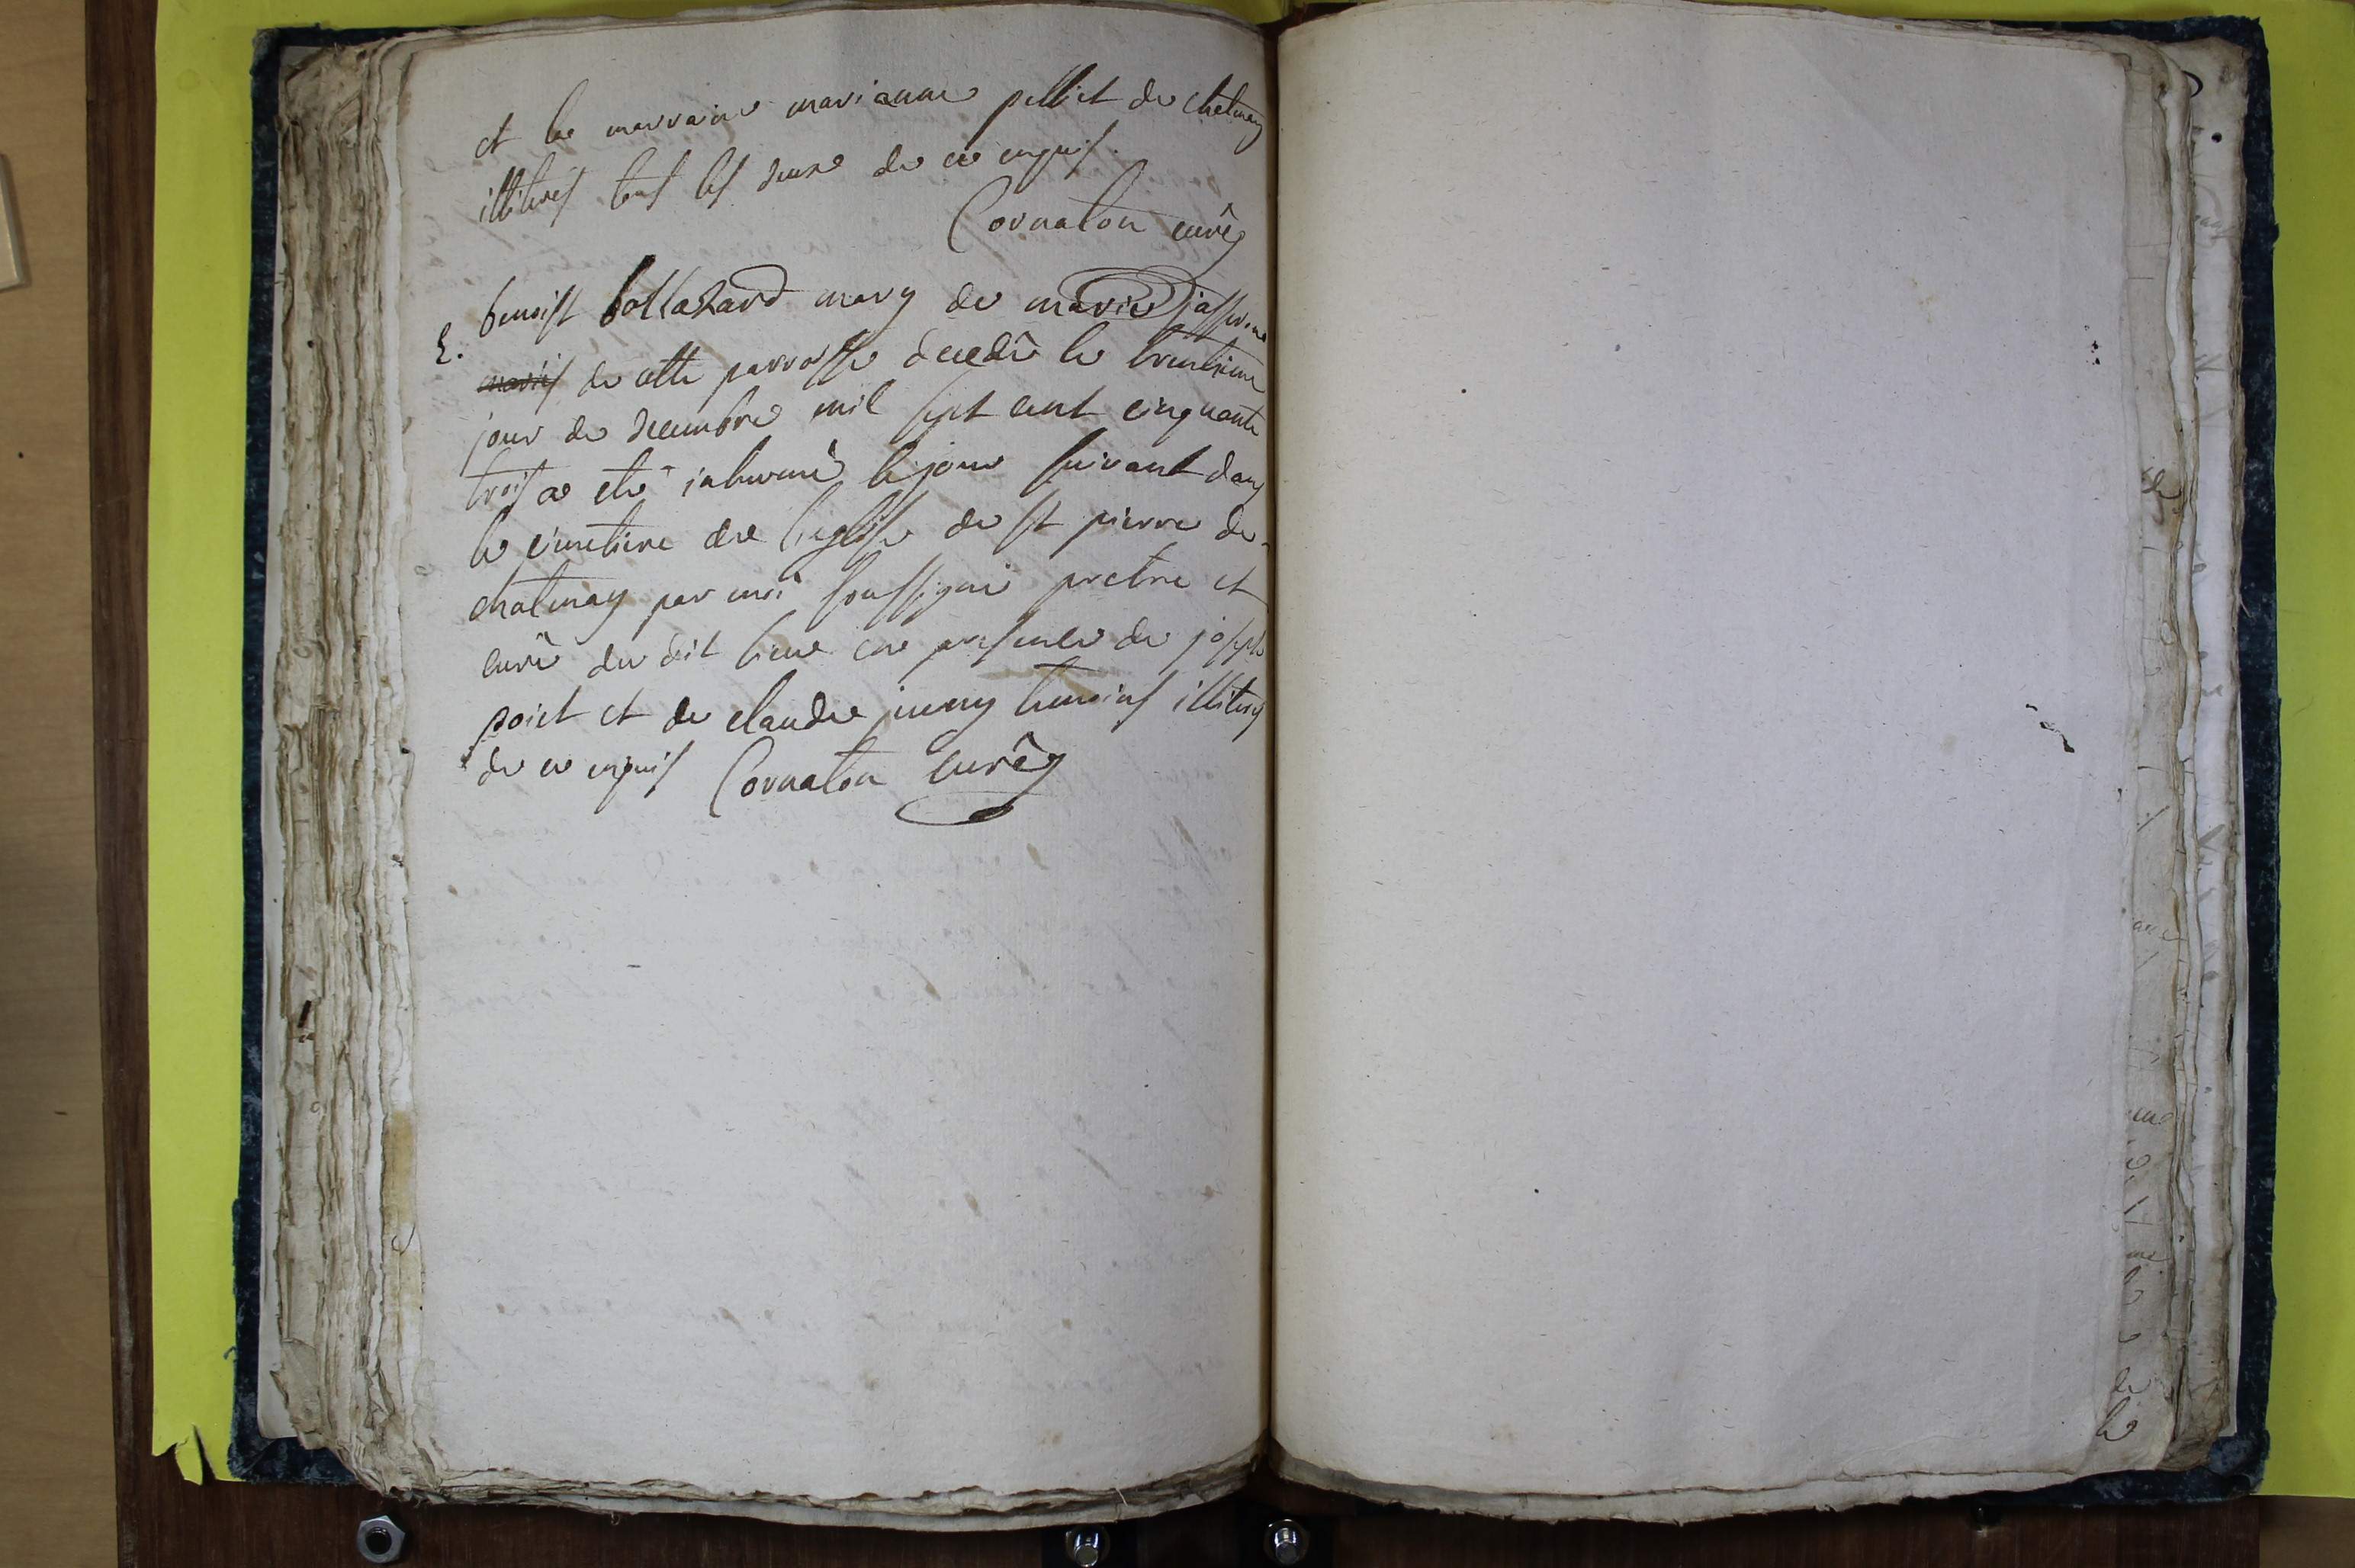 et la marraine marianne pelliet de chatenay
illiterés tous les deux de ce enquis.
Cornaton curé
E. benoist bollazard mary de marie
mariés de cette parroisse decedé le trentieme
jour de decembre mil sept cent cinquante
trois a eté inhumé le jour suivant dans
le cimetiere de l'eglise de st pierre de
chatenay par moi soussigné pretre et
curé du dit lieu en presence de joseph
poiet et de claude temoins illiterés
de ce enquis Cornaton curé